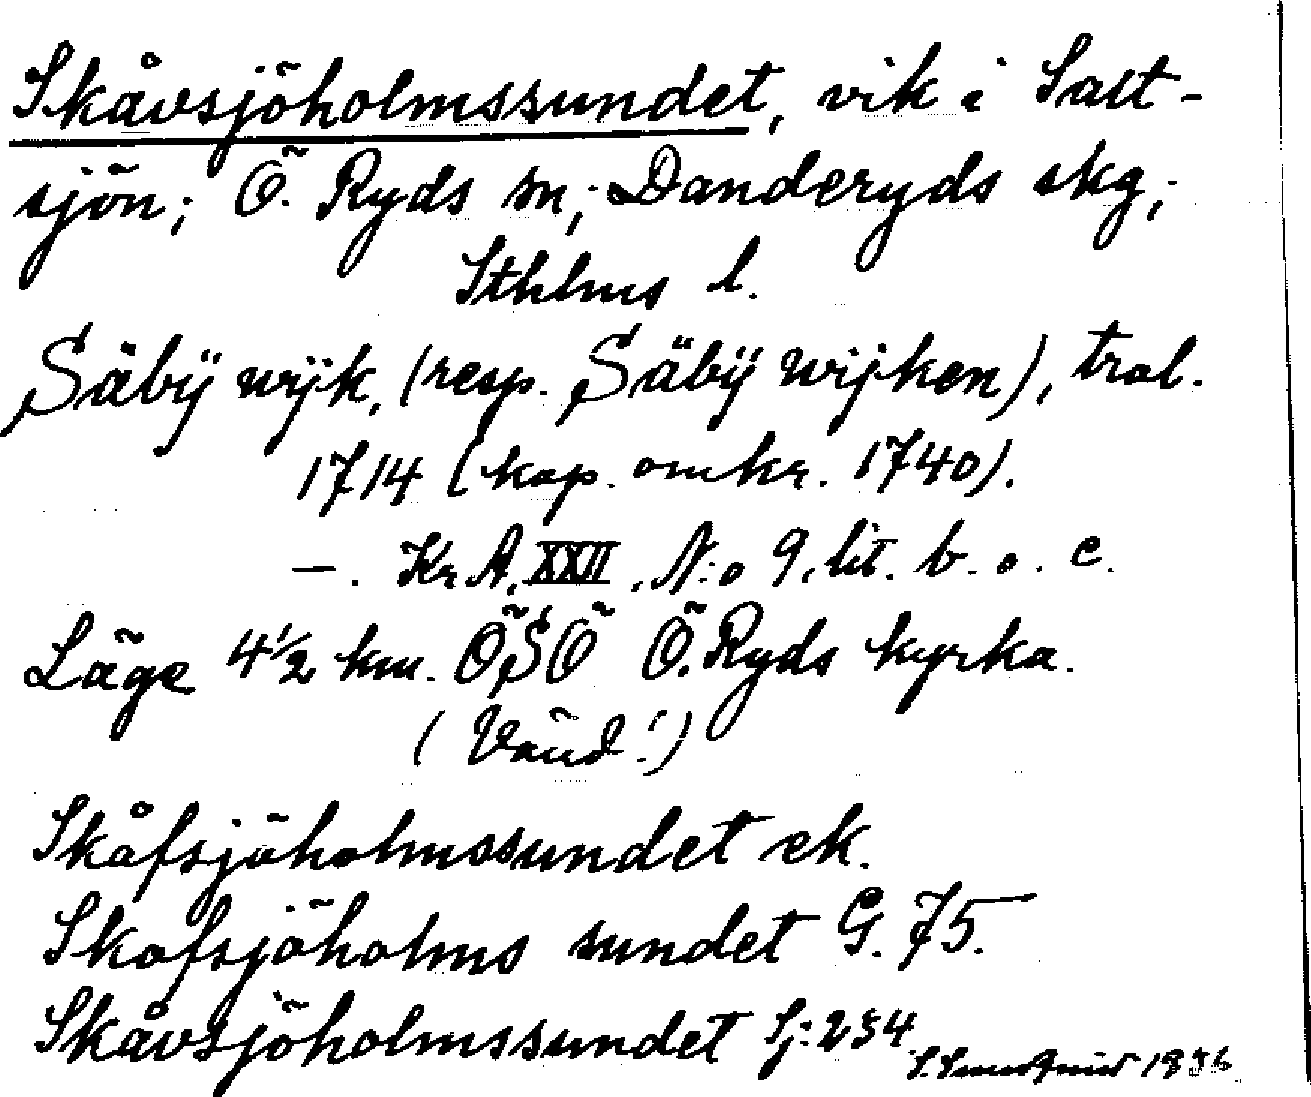 Skåvsjöholmssundet, vik i Salt-
sjön; Ö. Ryds sn; Danderyds skg;
Sthlms l.
Säbÿ wijk, (resp. Säbÿ wijken), trol.
1714 (kop. omkr. 1740).
—. Kr A, XXII, N:o 9, lit. b. o. c.
Läge 4 1/2 km. ÖSÖ Ö. Ryds kyrka.
(Vänd!)
Skåfsjöholmssundet ek.
Skofsjöholms sundet G. 75.
Skåvsjöholmssundet Sj: 234
1936